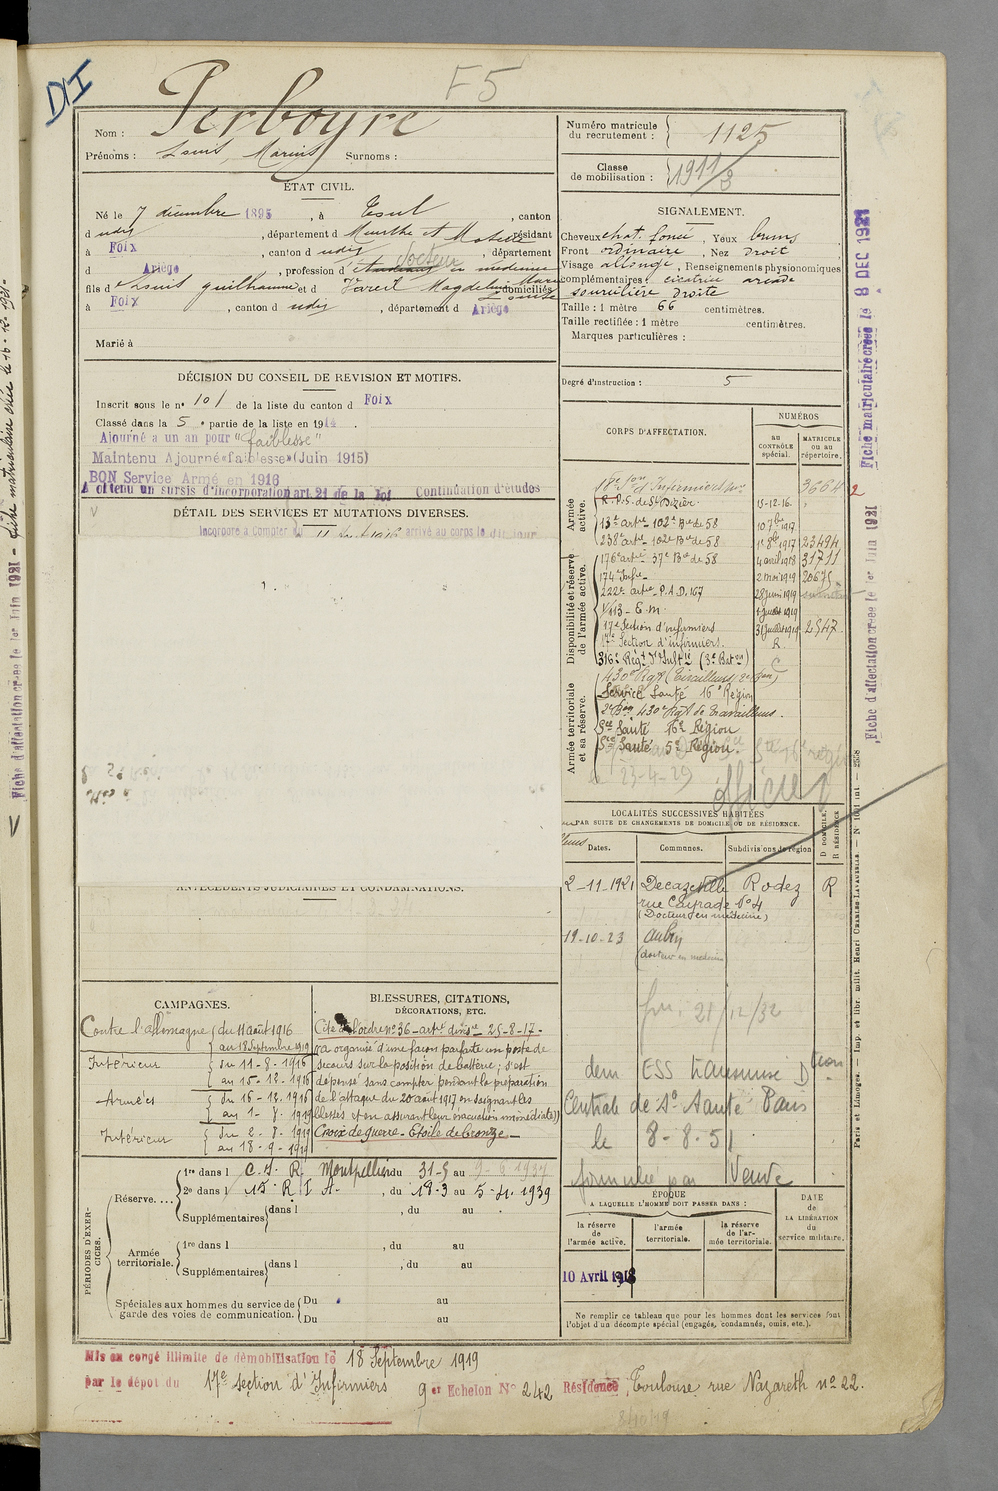 DI
F5
Nom : Perboyre
Prénoms : Louis, Marius Surnoms :
ÉTAT CIVIL.
Né le 7 décembre 1895, à Toul, canton
d udit, département d Meurthe et Moselle résidant
à Foix, canton d udit, département
d Ariège, profession d Étudiant en médecine
Docteur
fils d e Louis guilhaume et d Vareil Magdeleine Marie domiciliés
Louise
à Foix, canton d udit, département d Ariège
Marié à
DÉCISION DU CONSEIL DE REVISION ET MOTIFS.
Inscrit sous le n° 101 de la liste du canton d Foix
Classé dans la 5e partie de la liste en 1914.
Ajourné a un an pour "faiblesse"
Maintenu Ajourné «faiblesse» (Juin 1915)
BON Service Armé en 1916
A obtenu un sursis d'incorporation art. 21 de la loi Continuation d'études
DÉTAIL DES SERVICES ET MUTATIONS DIVERSES.
Incorporé à compter du 11 Août 1916 arrivé au corps le dit jour
ANTÉCÉDENTS JUDICIAIRES ET CONDAMNATIONS.
CAMPAGNES.
Contre l'allemagne du 11 août 1916
au 18 Septembre 1919
Intérieur du 11-8-1916
au 15-12-1916
Armées du 16-12-1916
au 1-8-1919
Intérieur du 2-8-1919
au 18-9-1919
BLESSURES, CITATIONS,
DÉCORATIONS, ETC.
Cité à l'ordre n° 36 - artie divre 25-8-17 -
"a organisé d'une façon parfaite un poste de
secours sur la position de batterie ; s'est
dépensé sans compter pendant la préparation
de l'attaque du 20 août 1917 en soignant les
blessés et en assurant leur évacuation immédiate"
Croix de guerre - Etoile de bronze -
PÉRIODES D'EXERCICES.
Réserve....
1re dans l C. I. R. Montpellier du 31-5 au 9-6 1937
2e dans l 15 R I A -, du 18-3 au 5-4-1939
Supplémentaires dans l, du au
Armée territoriale.
1re dans l, du au
Supplémentaires dans l, du au
Spéciales aux hommes du service de garde des voies de communication.
Du au
Du au
Numéro matricule du recrutement : 1125
Classe de mobilisation : 1911/3
SIGNALEMENT.
Cheveux chat. foncé, Yeux bruns
Front ordinaire, Nez droit
Visage allongé, Renseignements physionomiques
complémentaires : cicatrice arcade
sourcilière droite
Taille : 1 mètre 66 centimètres.
Taille rectifiée : 1 mètre centimètres.
Marques particulières :
Degré d'instruction : 5
CORPS D'AFFECTATION.
NUMÉROS
AU CONTRÔLE spécial.
MATRICULE ou au répertoire.
Armée active.
Disponibilité et réserve de l'armée active.
Armée territoriale et sa réserve.
18e Son d'Infirmiers Mres 3664 2
R.P.S. de St Dizier 15-12-16.
13e artie 102e Bie de 58 10 7bre 1917
238e artie - 102e Bie de 58 1er 8bre 1917 23494
176e artie 37e Bie de 58 4 avril 1918 31711
174 Infie - 2 mai 1919 20675
222e artie - P.A.D. 167 28 juin 1919
1/113 - E.M. 1 juillet 1919
17e Section d'infirmiers 31 juillet 1919 2547
17e Section d'infirmiers. R.
316e Régt d'Inftie (3e Baton) C
430e Régt (Tirailleurs, 2e Bon)
Service Santé 16e Région
2e Bon 430e Régt de Travailleurs.
Sce Santé 16e Région
Sce Santé 5e Région.
Sce Sté 16e région
le 23-4-29
officier
LOCALITÉS SUCCESSIVES HABITÉES
PAR SUITE DE CHANGEMENTS DE DOMICILE OU DE RÉSIDENCE.
Dates.
Communes.
Subdivisions de région
D DOMICILE
R RÉSIDENCE
2-11-1921 Decazeville Rodez R
rue Cayrade N° 4
(Docteur en médecine)
19-10-23 Aubin
(docteur en médecine
21/12/32
dem ESS transmise D tion
Centrale de Sce Santé Paris
le 8-8-51
formulée par Veuve
ÉPOQUE
A LAQUELLE L'HOMME DOIT PASSER DANS :
la réserve de l'armée active.
l'armée territoriale.
la réserve de l'armée territoriale.
DATE de LA LIBÉRATION du service militaire.
10 Avril 1918
Ne remplir ce tableau que pour les hommes dont les services font
l'objet d'un décompte spécial (engagés, condamnés, omis, etc.).
Mis en congé illimité de démobilisation le 18 Septembre 1919
par le dépôt du 17e section d'Infirmiers 9 er Echelon N° 242 Résidence Toulouse, rue Nazareth n° 22.
Fiche matriculaire créée le 8 DEC 1921
Fiche d'affectation créée le 1er Juin 1921
Paris et Limoges. — Imp. et libr. milit. Henri CHARLES-LAVAUZELLE. — N° 1021 int — 2558
Fiche d'affectation créée le 1er Juin 1921 - fiche matriculaire créée le 16-12-1921-